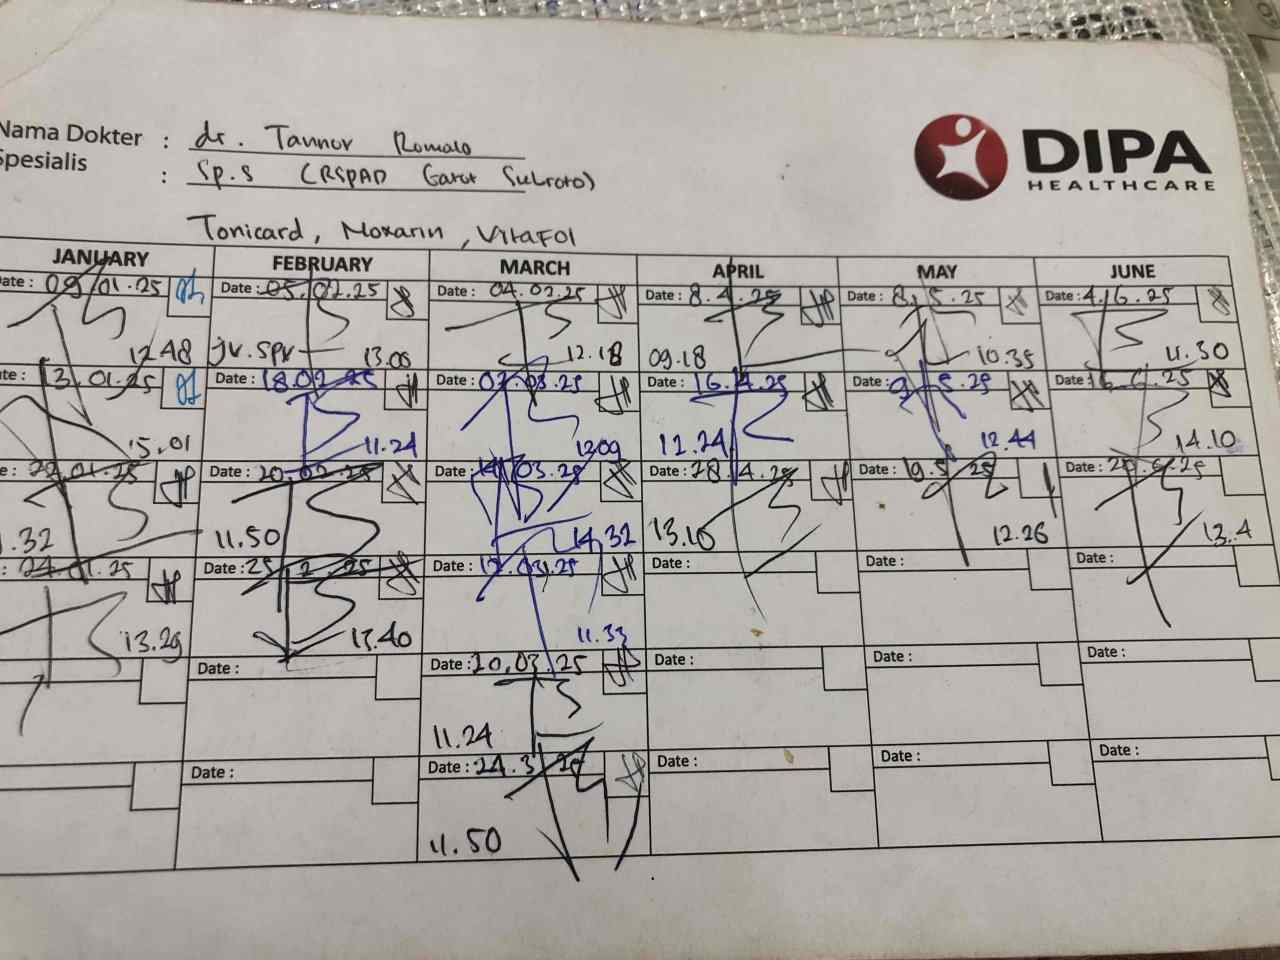 Nama Dokter : dr. Tannov Romalo
Spesialis : Sp.S (RSPAD Gatot Subroto)
DIPA
HEALTHCARE
Tonicard, Noxarin, VitaFOl
JANUARY FEBRUARY MARCH APRIL MAY JUNE
Date : 09.01.25 Date : 05.02.25 Date : 04.03.25 Date : 8.4.25 Date : 8.5.25 Date : 4.6.25
12.48 jv. spv 13.00 12.18 09.18 10.35 11.30
Date : 13.01.25 Date : 18.02.25 Date : 07.03.25 Date : 16.4.25 Date : 9.5.25 Date :
15.01 11.24 1209 12.24 12.44 14.10
Date : 22.01.25 Date : 20.02.25 Date : 03.25 Date : 28.4.25 Date : 19.5.25 Date :
.32 11.50 14.32 13.10 12.26 13.4
: 24.01.25 Date : 25.2.25 Date : 03.25 Date : Date : Date :
13.29 13.40 11.33
Date : Date : 20.03.25 Date : Date : Date :
11.24
Date : Date : 24.3.25 Date : Date : Date :
11.50